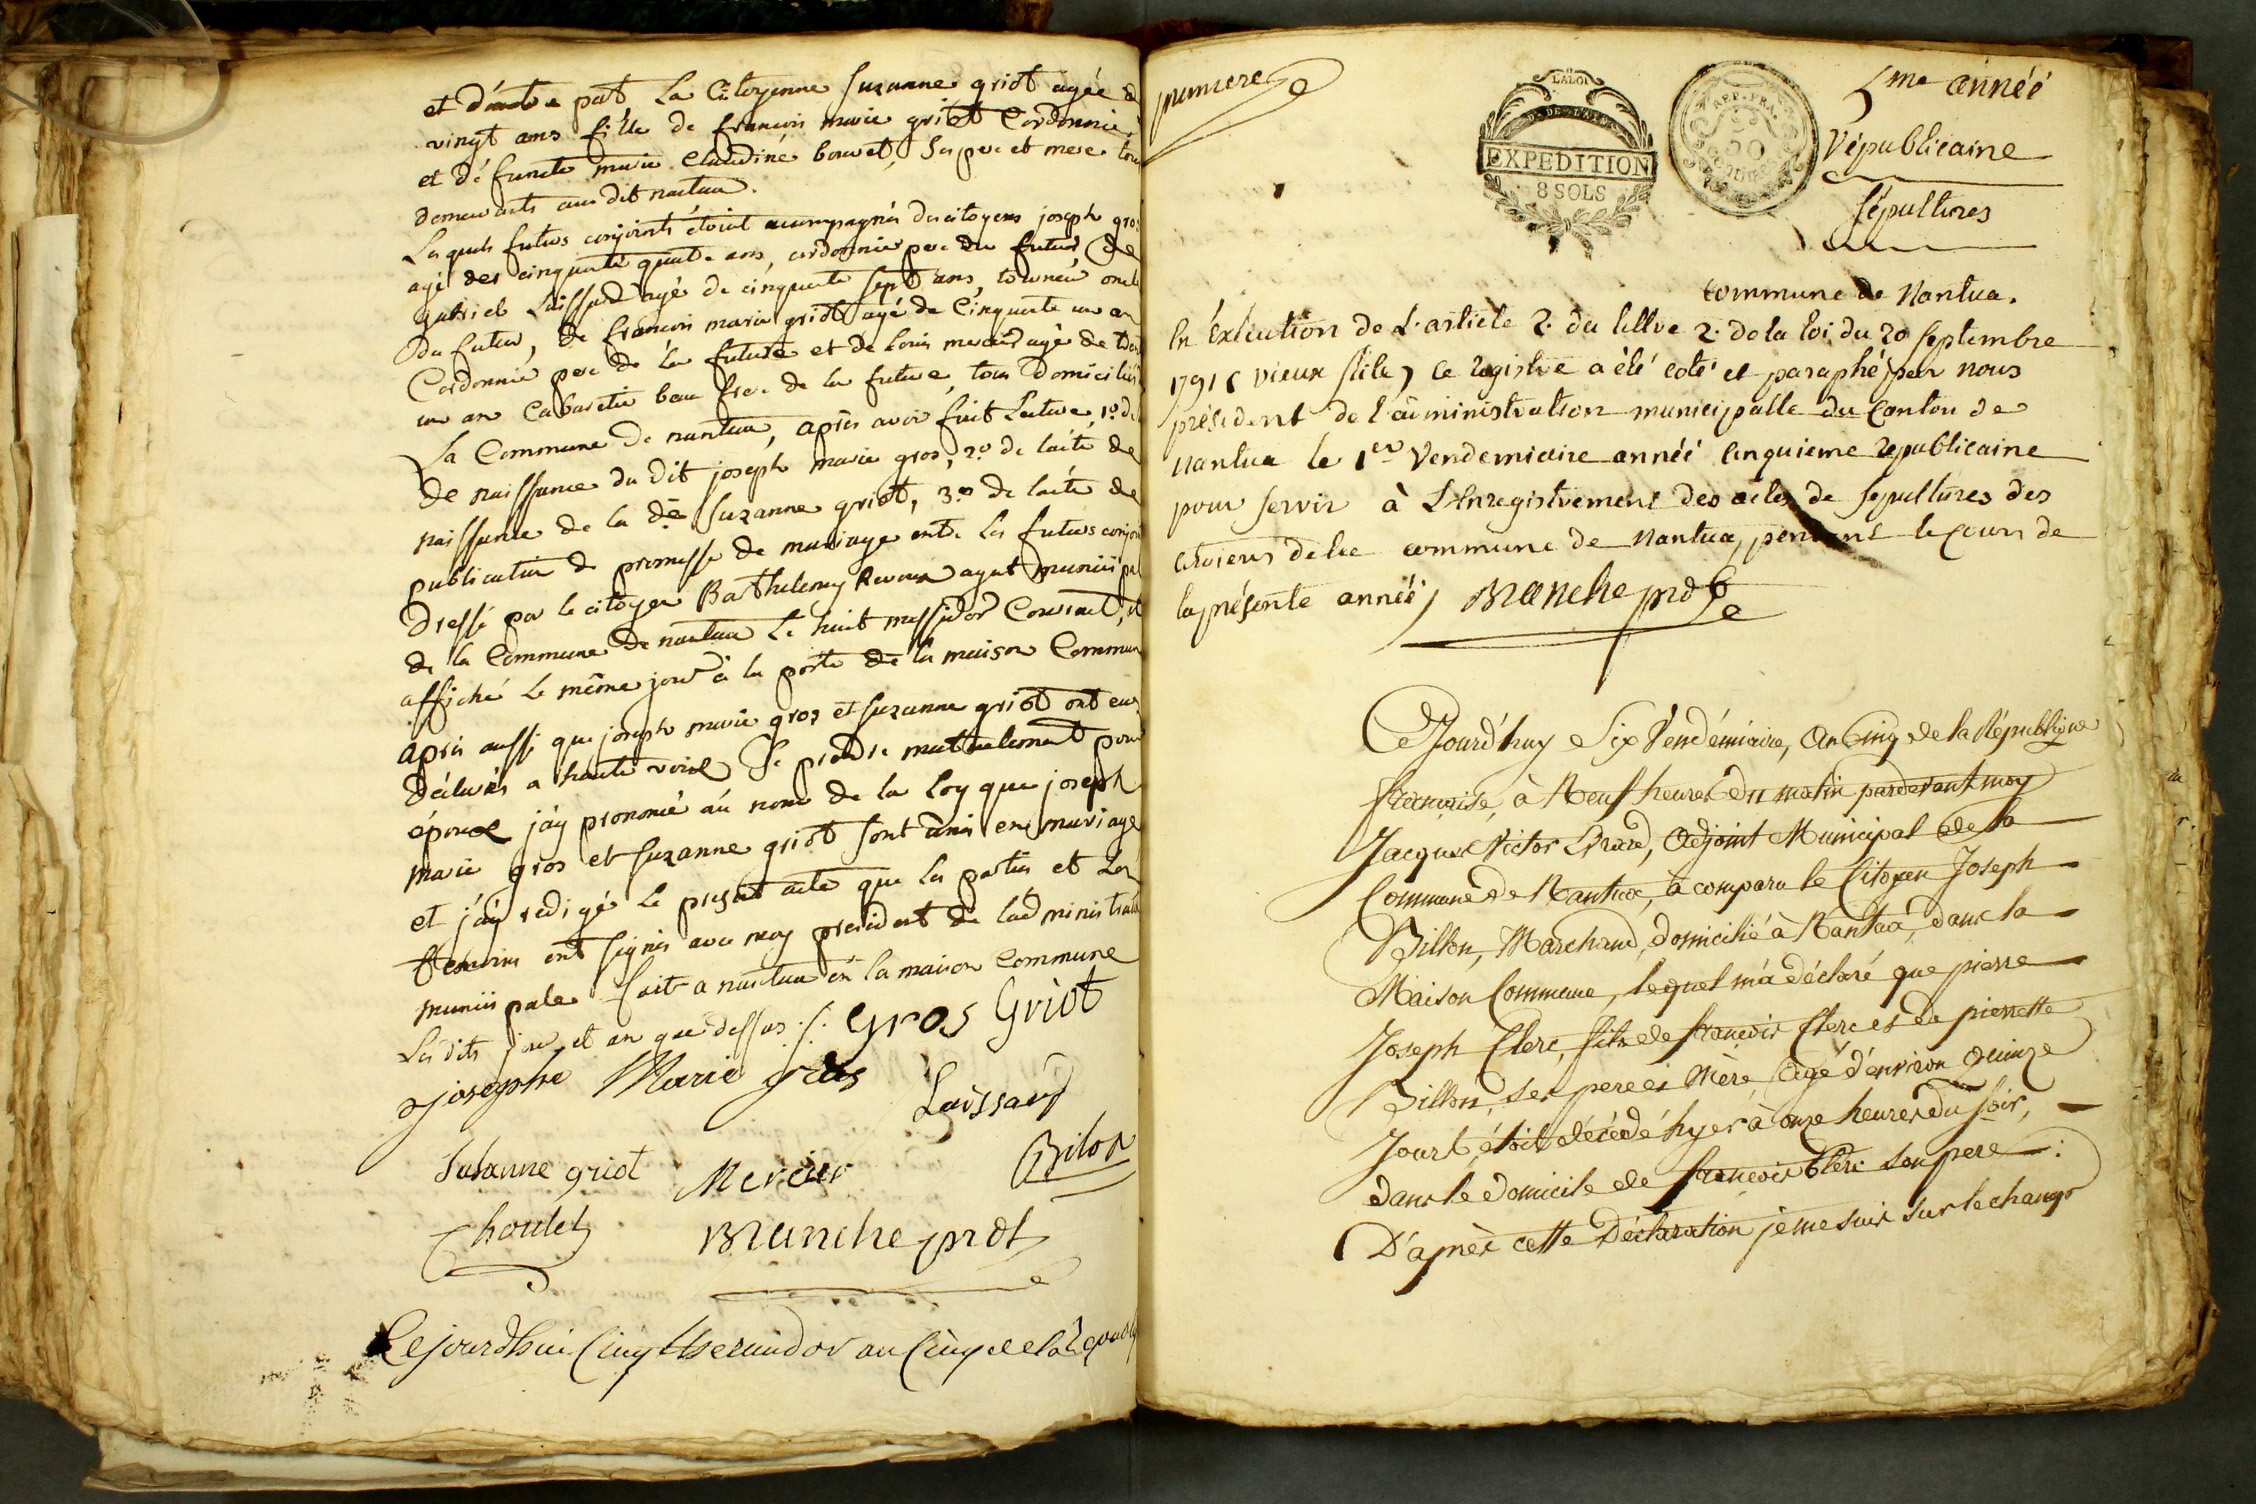 et d'autre part La Citoyenne Suzanne griot agée de
vingt ans fille de francois marie griot Cordonnier
et défuncte marie Claudine bouvet, ses pere et mere tous
demeurants au dit nantua.
Lesquels futurs conjoints étoient acompagnés des citoyens joseph gros
agé des cinquante quatre ans, cordonnier pere du futur, de
gabriel Laissard agé de cinquante sept ans, tourneur oncle
du futur, de francois marie griot agé de Cinquante un an
Cordonnier pere de la future et de Louis mercier agé de
un an Cabaretier beau frere de la future, tous domiciliés
La Commune de nantua, après avoir fait Lecture 1º. de
de naissance du dit joseph marie gros, 2º de l'acte de
naissance de la de Suzanne griot, 3º de l'acte de
publication de promesse de mariage entre les futurs conjoints
Dressé par le citoyen Barthelemy agent municipal
de la Commune de nantua le huit messidor Courant, et
affiché le même jour à la porte de la maison Commune
après aussi que joseph marie gros et suzanne griot ont eu
déclarés a haute voix se prendre mutuelement pour
époux j'ay prononcé au nom de la Loy que joseph
marie gros et suzanne griot sont unis en mariage
et j'ay redigé le present acte que les parties et Les
temoins ont signés avec moy president de l'administration
municipale fait a nantua en la maison Commune
Les dits jour et an que dessus ·/· Gros Griot
josephe Marie gros
Laissard
Susanne griot Mercier Bilon
Choulet Branche prdt
Cejourdhui Cinq thermidor an Cinq de la Repub
premiere
LA LOI
EXPEDITION
8 SOLS
REP. FRA.
50
5me année
républicaine
Sépultures
commune de Nantua.
En Éxécution de L'article 2. du tittre 2. de la loi du 20 septembre
1791 (vieux stile) ce registre a été coté et paraphé par nous
président de l'administration municipalle du Canton de
Nantua le 1er Vendemiaire année cinquieme republicaine
pour servir à L'Enregistrement des actes de sepultures des
citoiens de la commune de Nantua, pendant le cours de
la présente année, Branche prdt
Cejourd'huy Six Vendémiaire, an Cinq de la République
française, à Neuf heures du matin pardevant moy
Jacques Victor, Adjoint Municipal de la
Commune de Nantua, a comparu le Citoyen Joseph
Billon, Marchand, domicilié à Nantua, dans la
Maison Commune, lequel m'a déclaré que pierre
Joseph Clerc, fils de françois Clerc et de pierrette
Billon, ses pere et Mère, agé d'environ quinze
Jours, étoit décédé hyer à onze heures du soir,
dans le domicile de françois Clerc son pere :
D'après cette Déclaration je me suis sur le champ